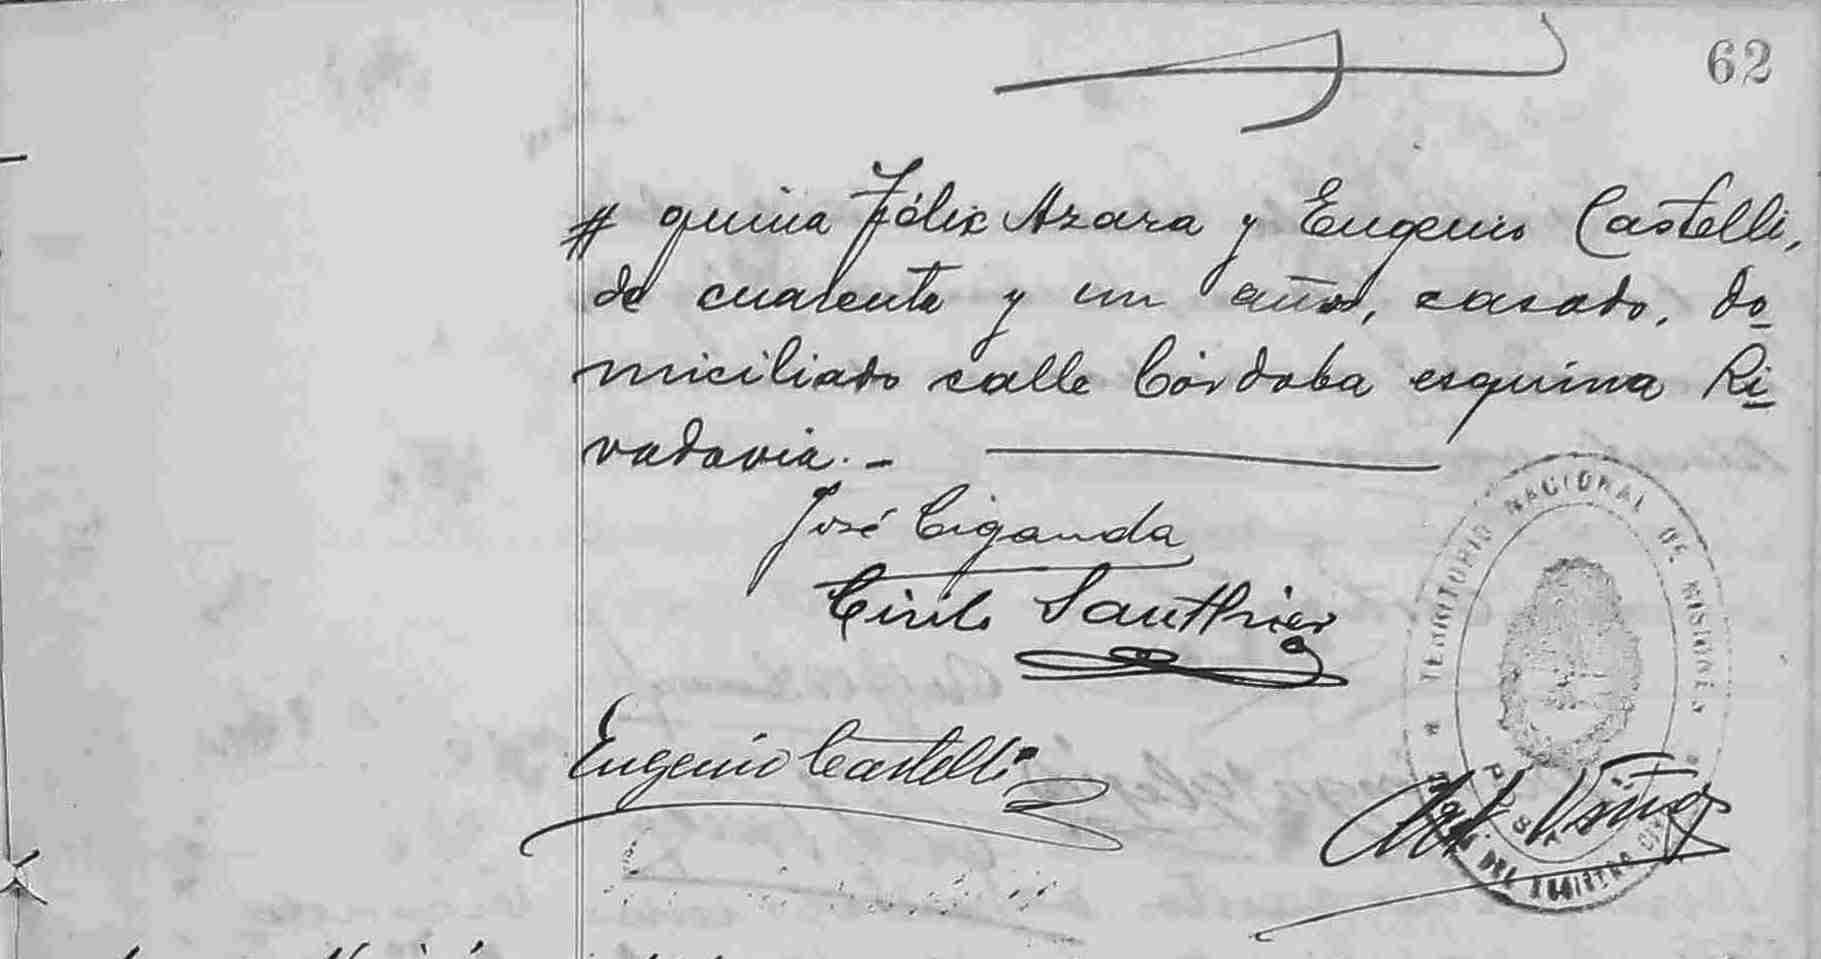 62
# quina Félix Azara y Eugenio Castelli,
de cuarenta y un años, casado, do
miciliado calle Córdoba esquina Ri
vadavia. -
José Ciganda
Cirilo Sauthier
Eugenio Castelli
TERRITORIO NACIONAL DE MISIONES
DEL REGISTRO